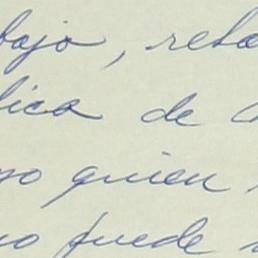 bajo, reba
lica de
yo quien
no puede